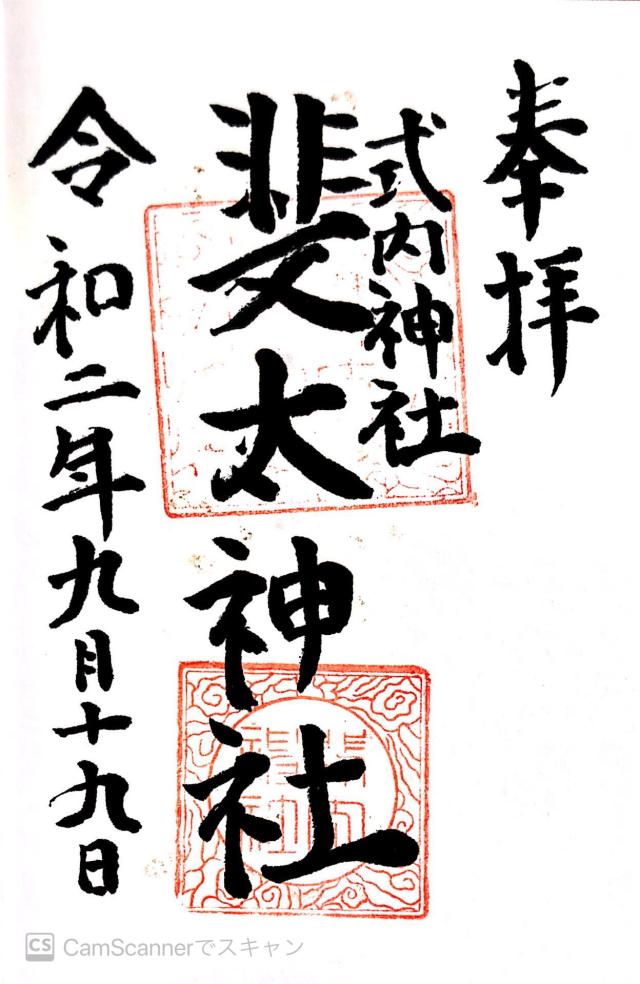 奉拝
式内神社
斐太神社
令和二年九月十九日
CS CamScannerでスキャン